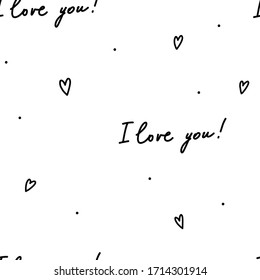 I love you!
I love you!
I love you!
www.shutterstock.com · 1714301914